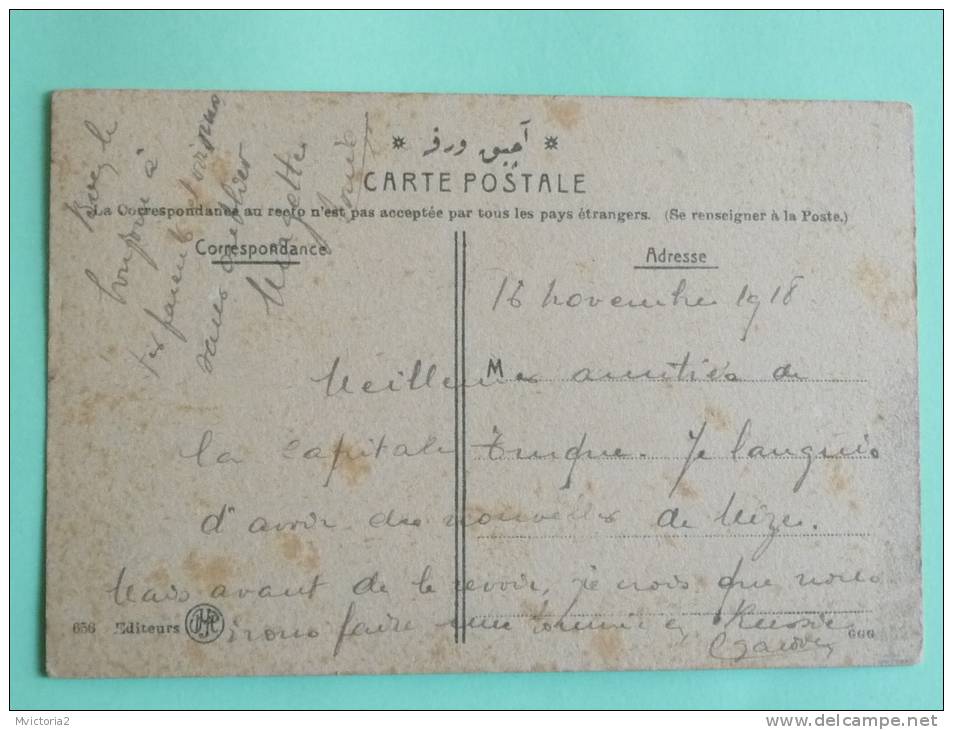 آچيق ورقه
CARTE POSTALE
La Correspondance au recto n'est pas acceptée par tous les pays étrangers. (Se renseigner à la Poste.)
Correspondance
Adresse
bonjour à
tes parents et voisins
sans oublier
16 novembre 1918.
M
Meilleures amitiés de
la capitale turque. Je languis
d'avoir des nouvelles de Mèze.
Mais avant de le revoir, je crois que nous
irons faire une tournée en Russie
656 Editeurs
666
Mvictoria2
www.delcampe.net